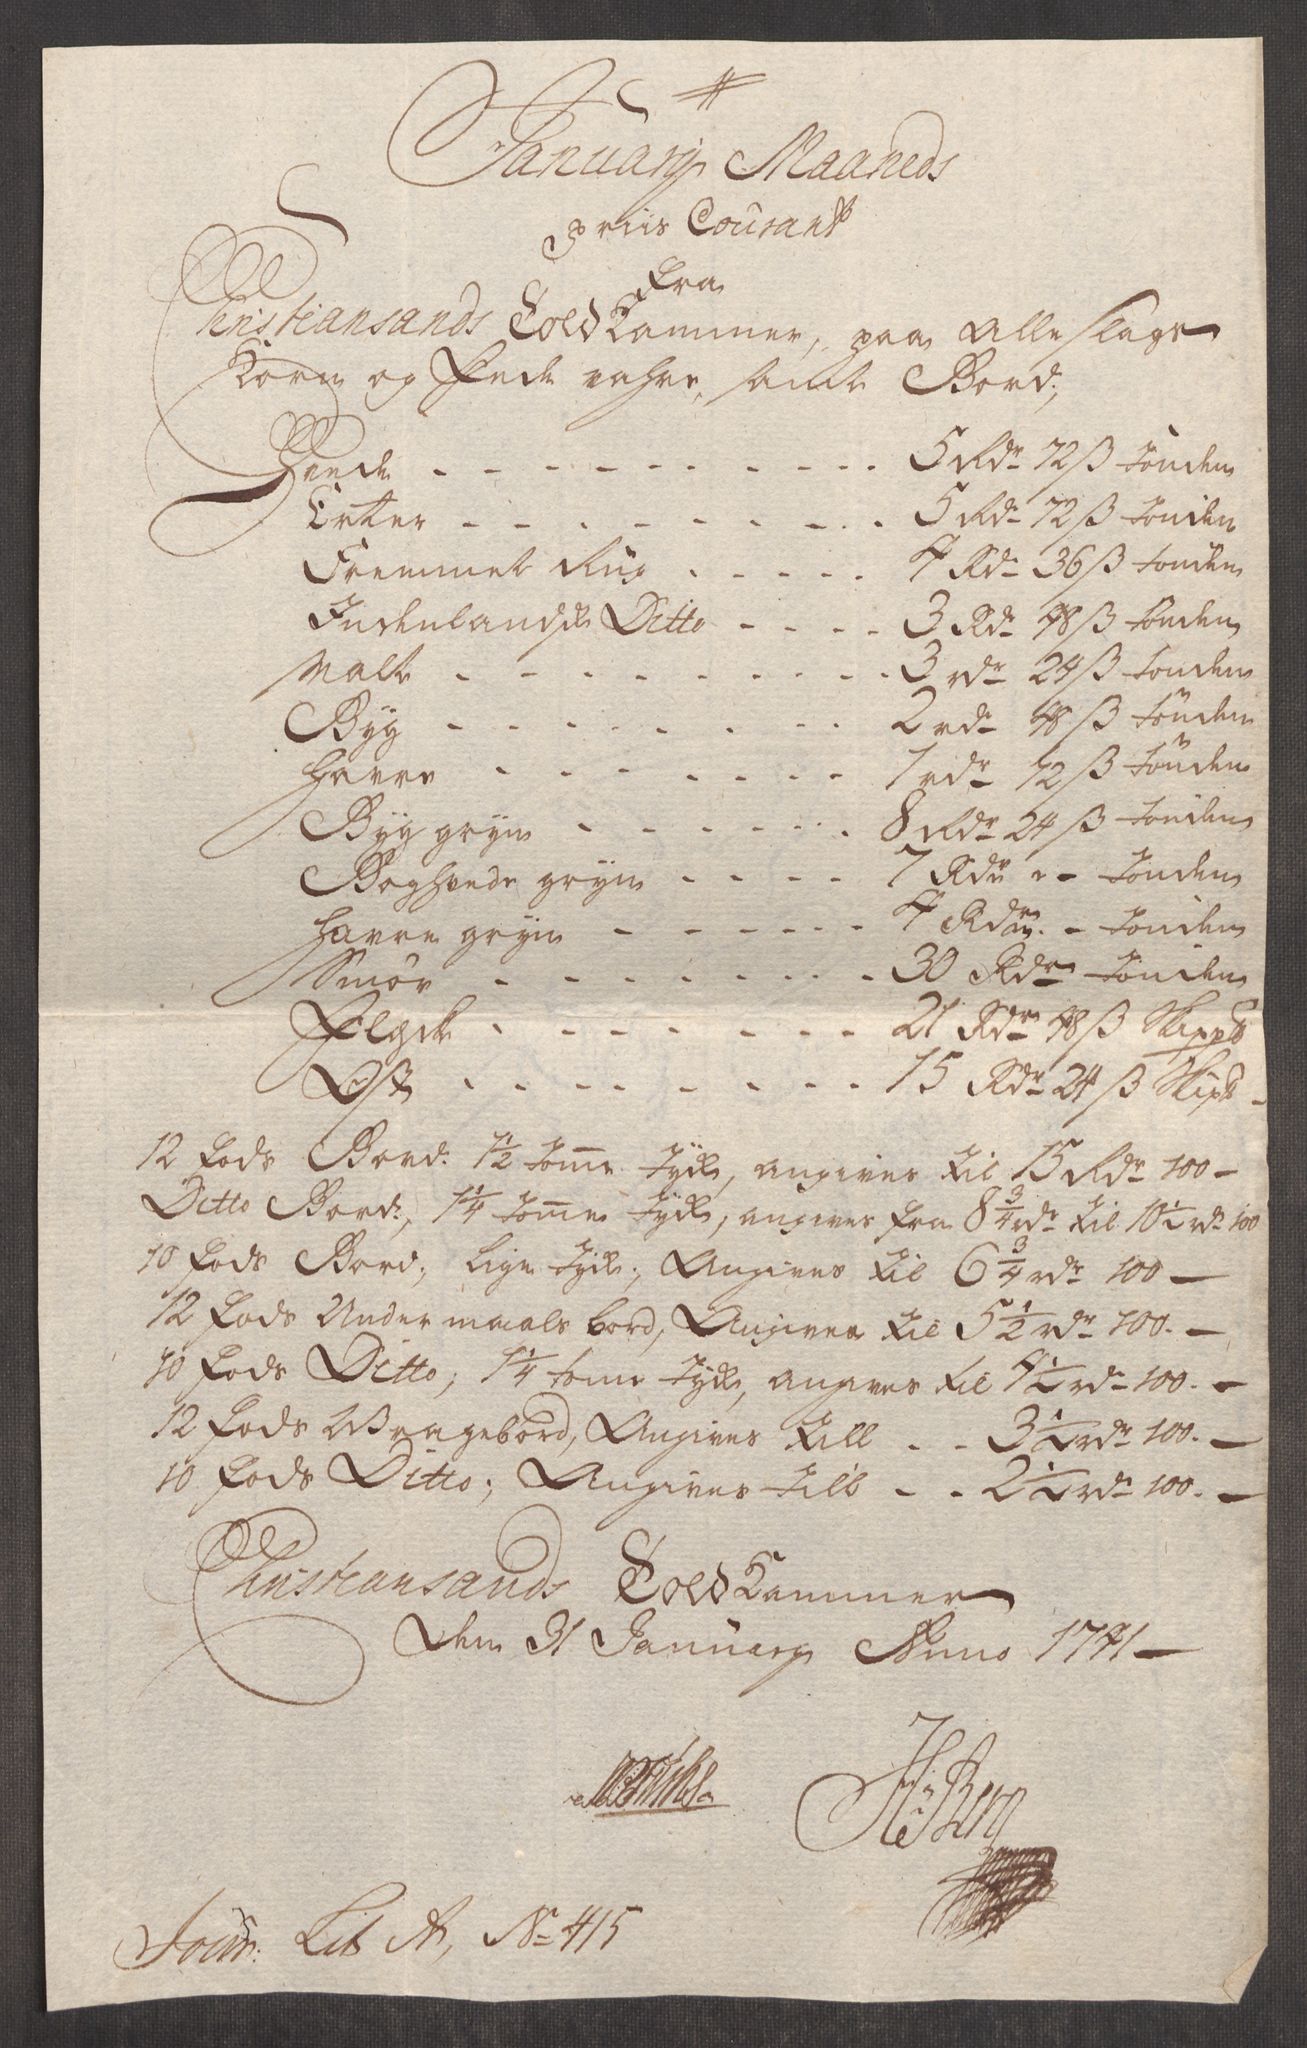 Januarij Maaneds
priis Courant
fra
Christiansands Told Kammer, paa alle slags
Korn og fede vahre, samt Bord;
Hvede - - - - - - - - - - 5 Rdr 72 ß tönden
Erter - - - - - - - - - - 5 Rdr 72 ß tönden
Fremmet Rüg - - - - - 4 Rdr 36 ß tönden
Indenlandsk Ditto - - - - 3 Rdr 48 ß tönden
Malt - - - - - - - - - - 3 rdr 24 ß tönden
Byg - - - - - - - - - 2 rdr 48 ß tönden
Havre - - - - - - - - 1 rdr 72 ß tönden
Byg gryn - - - - - - - 8 Rdr 24 ß tönden
Boghvede gryn - - - - 7 Rdr - - tönden
Havre gryn - - - - - - 4 Rdr - tönden
Smör - - - - - - - - - 30 Rdr tönden
Flesk - - - - - - - - 21 Rdr 48 ß Skippd
Ost - - - - - - - - - 15 Rdr 24 ß Skipd -
12 fods Bord: 1½ tomme tyk, angives til 15 Rdr 100 -
Ditto Bord:, 1¼ tomme tyk, angives fra 8¾ rdr til 10½ rdr 100
10 fods Bord; lige tyk; Angives til 6¾ rdr 100 -
12 fods Under maals bord, Angives til 5½ rdr 100. -
10 fods Ditto; 1¼ tome tyk, angives til 4½ rdr 100. -
12 fods Vragebord, Angives till - - 3½ rdr 100. -
10 fods Ditto; Angives till - - 2½ rdr 100. -
Christiansands Told Kammer
den 31 January Anno 1741 -
H: Berg
Jour: Lit A, No 415